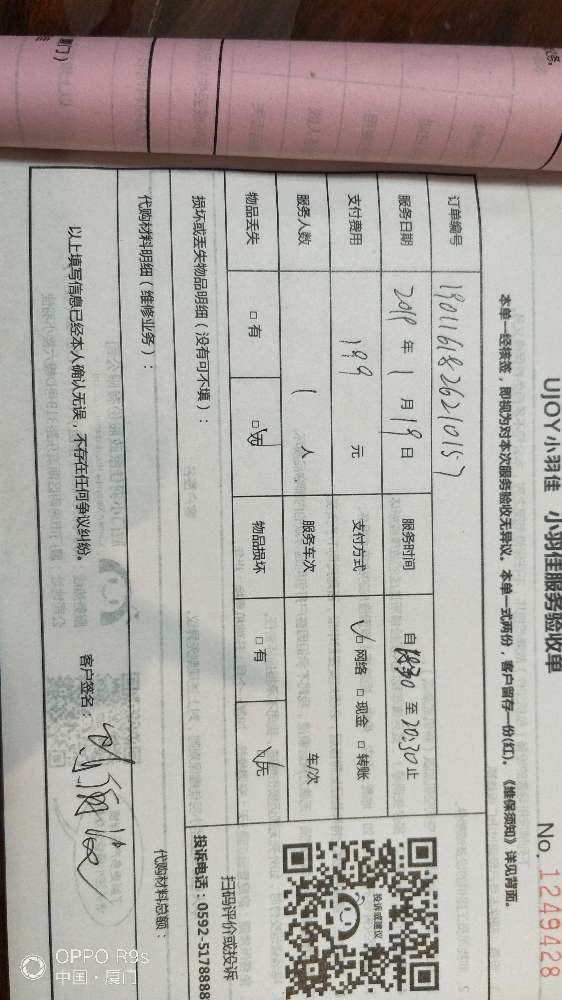 UJOY小羽佳 小羽佳服务验收单
No. 1249428
本单一经核签，即视为对本次服务验收无异议。本单一式两份，客户留存一份(红)。《维保须知》详见背面。
订单编号 1901161826210157
服务日期 2019 年 1 月 19 日 服务时间 自 18:30 至 20:30 止
支付费用 199 元 支付方式 √□ 网络 □ 现金 □ 转账
服务人数 1 人 服务车次 车/次
物品丢失 □ 有 □ 无 物品损坏 □ 有 □ 无
损坏或丢失物品明细（没有可不填）：
投诉或建议
扫码评价或投诉
投诉电话：0592-5178888
代购材料明细（维修业务）：
代购材料总额：
以上填写信息已经本人确认无误，不存在任何争议纠纷。
客户签名：
OPPO R9s
中国·厦门